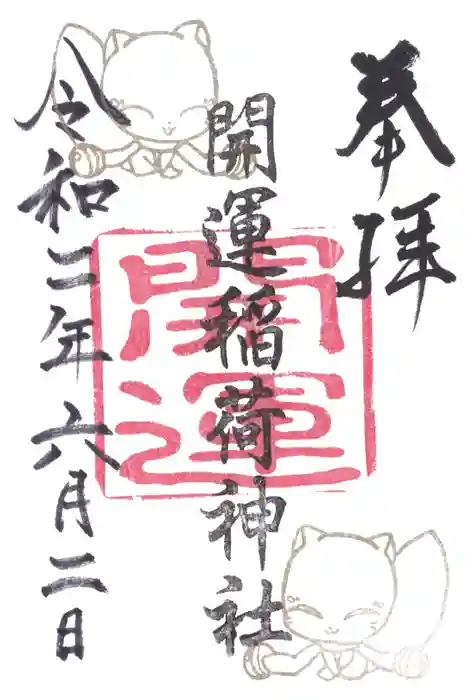 奉拝
開運稲荷神社
開運
令和二年六月二日